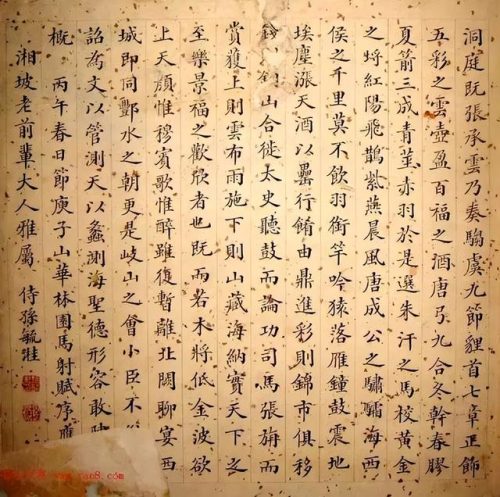 洞庭既張承雲乃奏騶虞九節貍首七章正飾
五彩之雲壺盈百福之酒唐弓九合冬幹春膠
夏箭三成青莖赤羽於是選朱汗之馬校黃金
之埒紅陽飛鵲紫燕晨風唐成公之驌驦海西
侯之千里莫不飲羽銜竿吟猿落雁鐘鼓震地
埃塵漲天酒以罍行餚由鼎進彩則錦市俱移
山合徙太史聽鼓而論功司馬張旃而
賞獲上則雲布雨施下則山藏海納實天下之
至樂景福之歡欣者也既而若木將低金波欲
上天顏惟穆賓歌惟醉雖復暫離北闕聊宴西
城即同酆水之朝更是岐山之會小臣不
詔為文以管測天以蠡測海聖德形容敢
概 丙午春日節庾子山華林園馬射賦序應
湘坡老前輩大人雅屬 侍孫毓